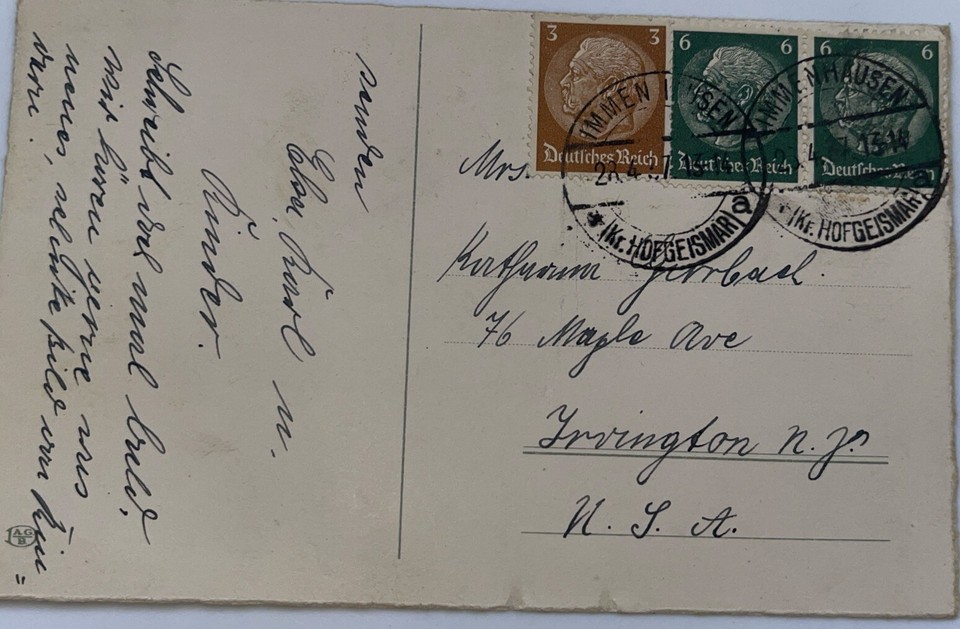 senden
Karl u.
Kinder.
Schreibt mal bald,
wir hören gerne was
neues, bild von Kin=
3 3
Deutsches Reich
6 6
Deutsches Reich
6 6
Deutsches Reich
IMMENHAUSEN
(Kr. HOFGEISMAR) a
IMMENHAUSEN
(Kr. HOFGEISMAR) a
Mrs.
76 Maple Ave
Irvington N. J.
U. S. A.
AG
B